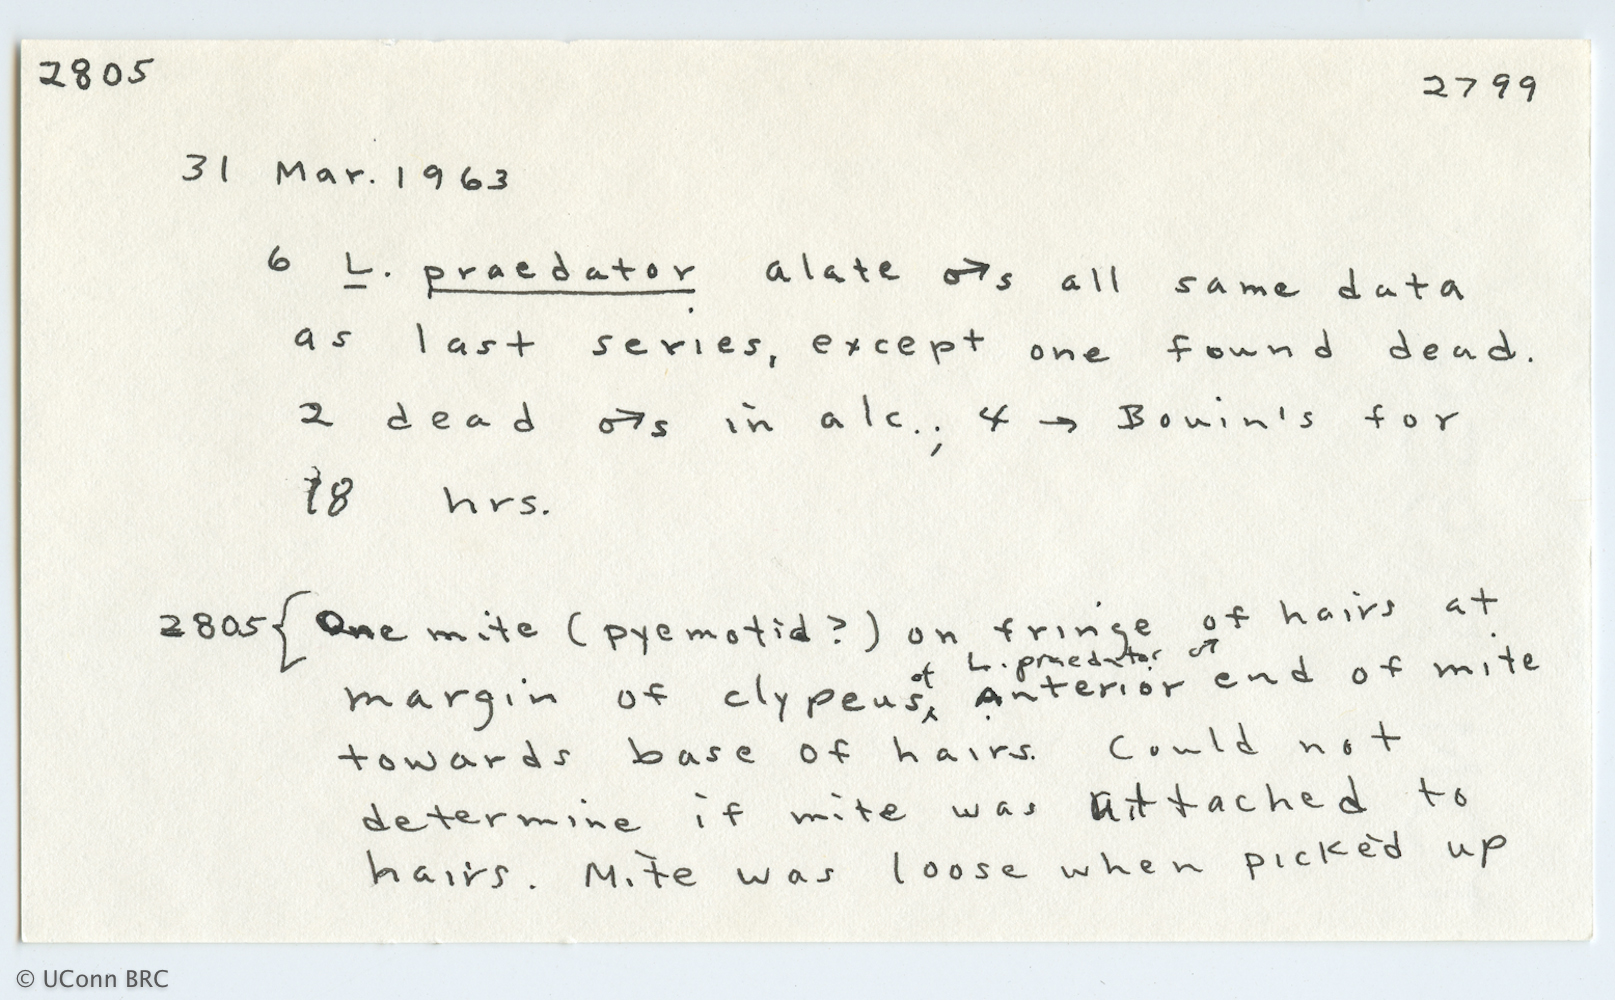 2805 2799
31 Mar. 1963
6 L. praedator alate ♂s all same data
as last series, except one found dead.
2 dead ♂s in alc.; 4 → Bouin's for
18 hrs.
2805 { One mite (pyemotid?) on fringe of hairs at
of L. praedator ♂
margin of clypeus. Anterior end of mite
towards base of hairs. Could not
determine if mite was attached to
hairs. Mite was loose when picked up
© UConn BRC